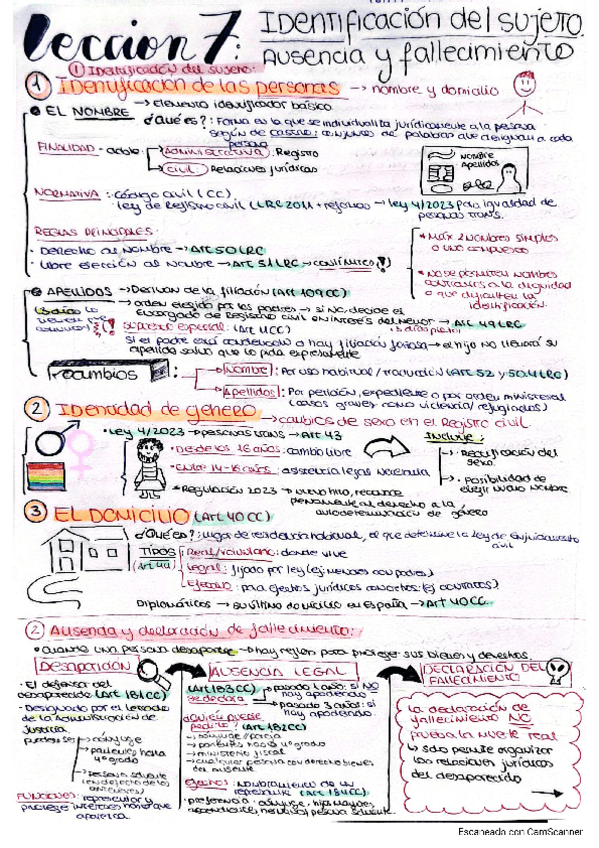 Lección 7: IDENTIFICACIÓN DEL SUJETO.
AUSENCIA Y FALLECIMIENTO
① Identificación del sujeto:
① IDENTIFICACIÓN DE LAS PERSONAS → nombre y domicilio
EL NOMBRE → Elemento identificador básico
¿Qué es?: Forma en la que se individualiza jurídicamente a la persona
conjunto de palabras que designan a cada
persona
FINALIDAD - doble
Administrativa: Registro
Civil: Relaciones jurídicas
Nombre
Apellidos
NORMATIVA: · Código civil (CC)
· Ley de Registro civil (LRC 2011 + reformas → Ley 4/2023 para igualdad de
personas trans.
REGLAS PRINCIPALES:
· Derecho al nombre → Art 50 LRC
· Libre elección al nombre → Art 51 LRC → con límites!
* Máx 2 nombres simples
o uno compuesto
* No se permiten nombres
contrarios a la dignidad
o que dificulten la
identificación.
APELLIDOS → Derivan de la filiación (Art 109 CC)
→ orden elegido por los padres → si NO, decide el
encargado de Registro civil en interés del menor → Art 49 LRC
Supuesto especial: (Art 111 CC)
Si el padre está condenado o hay filiación forzosa → el hijo NO llevará su
apellido salvo que lo pida expresamente
CAMBIOS:
→ Nombre: Por uso habitual / traducción (Art 52 y 50.4 LRC)
→ Apellidos: Por petición, expediente o por orden ministerial
(casos graves como violencia / refugiados)
② Identidad de género → cambios de sexo en el Registro civil.
· Ley 4/2023 → personas trans → Art 43
Incluye:
* Desde los 16 años: cambio libre
* Entre 14-16 años: asistencia legal necesaria
* Regulación 2023 → nuevo hito, reconoce
plenamente al derecho a la
autodeterminación de género
→ · Rectificación del
sexo.
→ · Posibilidad de
elegir nuevo nombre
③ EL DOMICILIO (Art 40 CC)
¿Qué es?: lugar de residencia habitual, el que determine la Ley de Enjuiciamiento
civil
TIPOS
Real/voluntario: donde vive
Legal: fijado por ley (ej: menores con padres)
Electivo: para efectos jurídicos concretos (ej contratos)
Diplomáticos → su último domicilio en España → Art 40 CC.
② Ausencia y declaración de fallecimiento:
· cuando una persona desaparece → hay reglas para proteger sus bienes y derechos.
DESAPARICIÓN
· El defensor del
desaparecido (Art 181 CC)
· Designado por el Letrado
de la Administración de
Justicia
pueden ser → cónyuge
→ parientes hasta
4º grado
→ persona solvente
(en defecto de los
anteriores)
FUNCIONES: representar y
proteger intereses hasta que
aparezca.
AUSENCIA LEGAL
(Art 183 CC)
se declara
→ pasado 1 año: si NO
hay apoderado
→ pasado 3 años: si
hay apoderado.
¿Quién puede
pedirlo? (Art 182 CC)
→ cónyuge / pareja
→ parientes hasta 4º grado
→ ministerio fiscal
→ cualquier persona con derecho bienes
del ausente
Efectos: Nombramiento de un
representante (Art 184 CC)
· preferencia: cónyuge, hijos mayores,
ascendientes, hermanos / persona solvente.
DECLARACIÓN DEL
FALLECIMIENTO
La declaración de
fallecimiento NO
prueba la muerte real
↳ sólo permite organizar
las relaciones jurídicas
del desaparecido
Escaneado con CamScanner